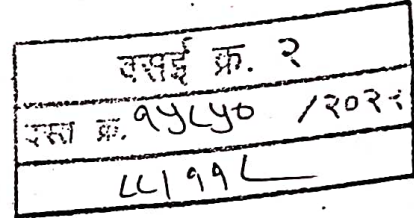 वसई क्र. २
दस्त क्र. १५८५० /२०२२
८८/११८